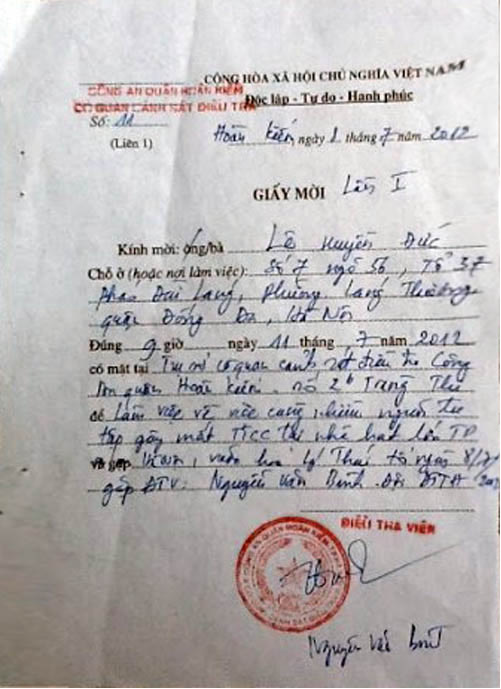 CỘNG HÒA XÃ HỘI CHỦ NGHĨA VIỆT NAM
CÔNG AN QUẬN HOÀN KIẾM
CƠ QUAN CẢNH SÁT ĐIỀU TRA
Độc lập - Tự do - Hạnh phúc
Số: 11
Hoàn Kiếm, ngày 8 tháng 7 năm 2012
(Liên 1)
GIẤY MỜI Lần I
Kính mời: ông/bà Lê Đức
Chỗ ở (hoặc nơi làm việc): Số 7 ngõ 56, Tổ 37
Pháo Đài Láng, Phường Láng Thượng
quận Đống Đa, Hà Nội
Đúng 9 giờ ngày 11 tháng 7 năm 2012
có mặt tại Trụ sở cơ quan cảnh sát điều tra Công
An quận Hoàn Kiếm. số 2 Tràng Thi
để Làm việc về việc cùng nhiều người tụ
tập gây mất TTCC tại nhà hát lớn TP
và gặp vườn hoa Lý Thái Tổ ngày 8/7/
gặp ĐTV: Nguyễn Văn Bình. Đội
ĐIỀU TRA VIÊN
CÔNG AN QUẬN HOÀN KIẾM
CẢNH SÁT ĐIỀU TRA
Nguyễn Văn Bình